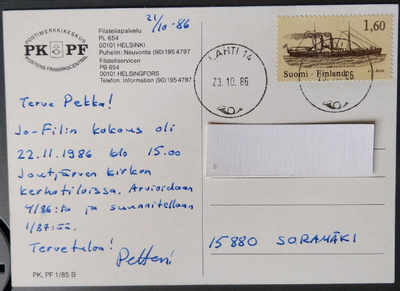 21/10-86
POSTIMERKKEISKUS
PK PF
POSTENS FRIMÄRKSCENTRAL
Filateliapalvelu
PL 654
00101 HELSINKI
Puhelin: Neuvonta (90) 195 4797
Filateliservicen
PB 654
00101 HELSINGFORS
Telefon: Information (90) 195 4797
LAHTI 14
23.10.86
1,60
Suomi - Finland
Terve Pekka!
Jo-Filin kokous oli
22.11.1986 klo 15.00
Joutjärven kirkon
kerhotiloissa. Arvioidaan
4/86:ta ja suunnitellaan
1/87:ää.
Tervetuloa!
Petteri
15880 SORAMÄKI
PK, PF 1/85 B